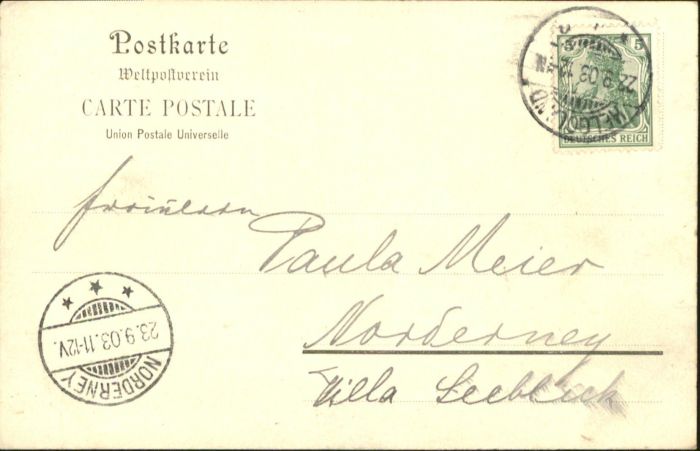 Postkarte
Weltpostverein
CARTE POSTALE
Union Postale Universelle
5 5
DEUTSCHES REICH
HELGOLAND
22.9.03
Fräulein
Paula Meier
Norderney
Villa Seeblick
23.9.03.11-12V.
NORDERNEY